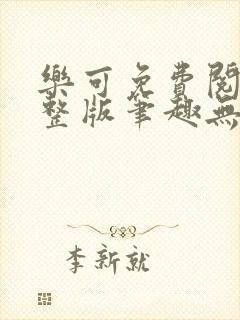 樂可免費閱
整版筆趣無
李新就